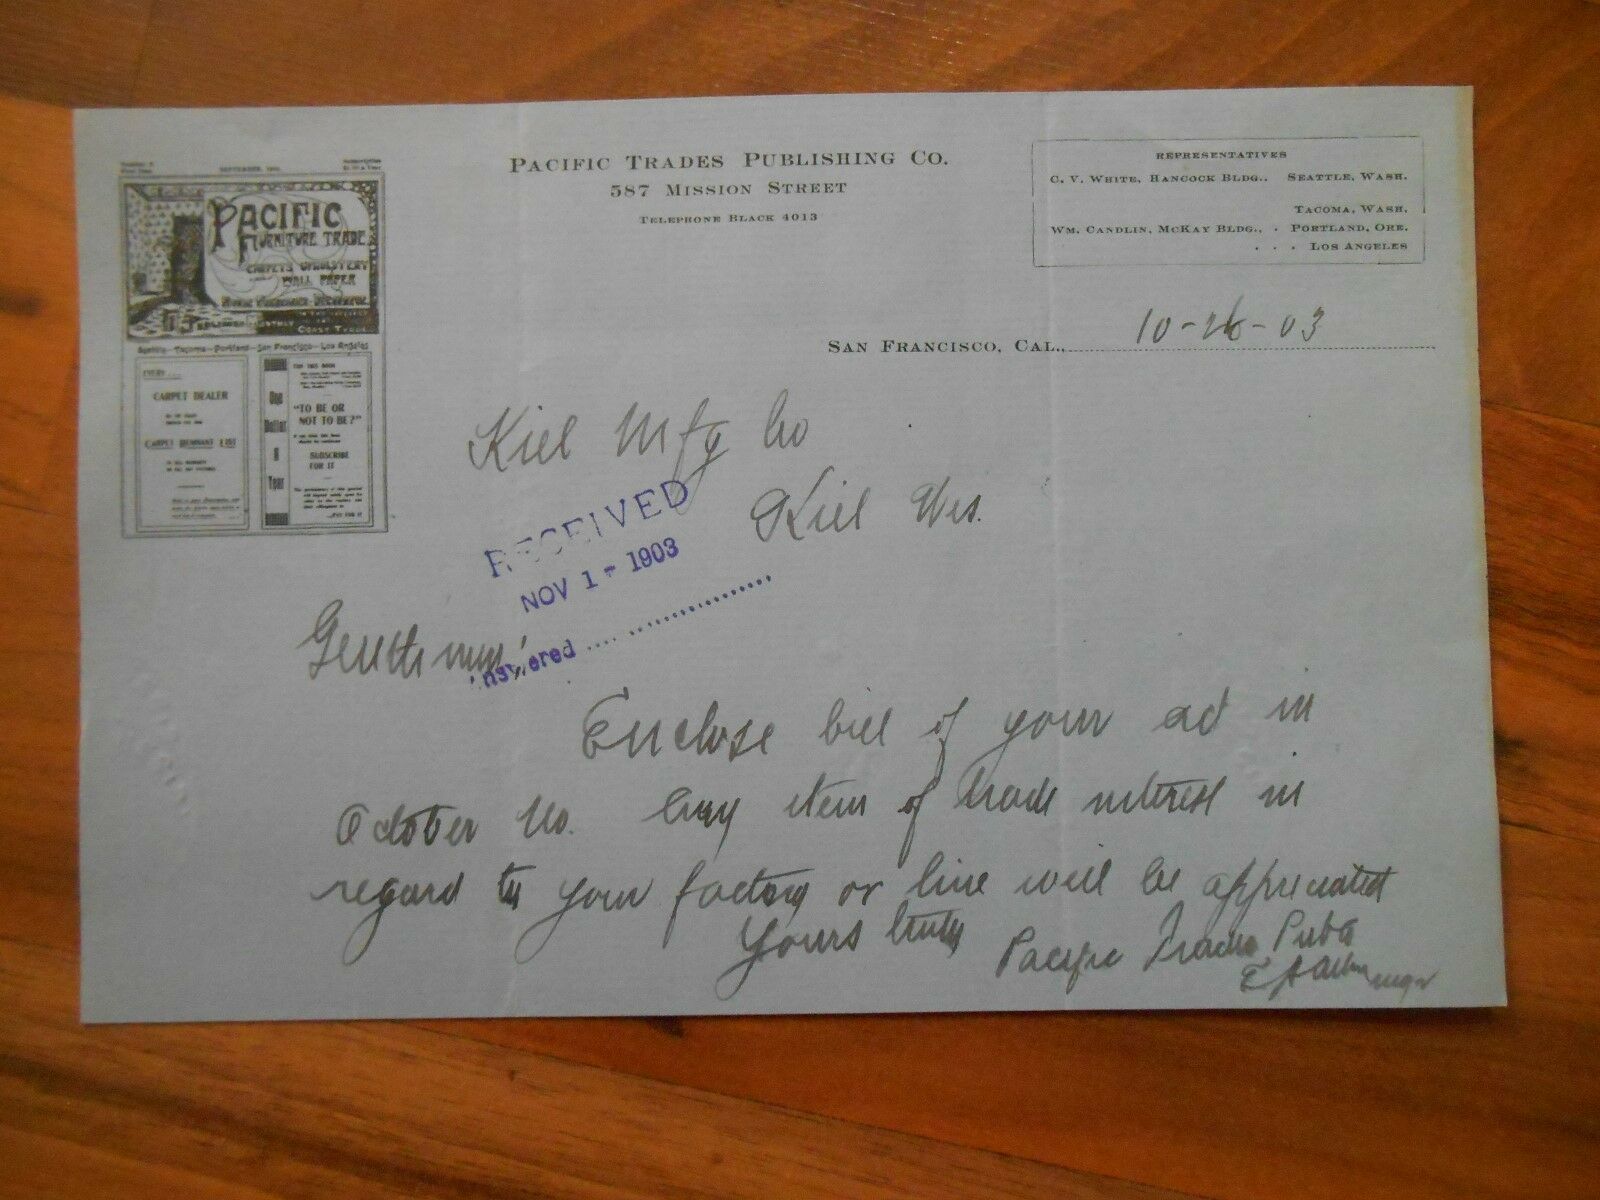 SEPTEMBER,
PACIFIC
FURNITURE TRADE
CARPETS UPHOLSTERY
WALL PAPER
COAST TRADE
Seattle - Tacoma - Portland - San Francisco - Los Angeles
EVERY
CARPET DEALER
CARPET REMNANT LIST
One
Dollar
A
Year
"TO BE OR
NOT TO BE?"
SUBSCRIBE
FOR IT
PACIFIC TRADES PUBLISHING CO.
587 MISSION STREET
TELEPHONE BLACK 4013
REPRESENTATIVES
C. V. WHITE, HANCOCK BLDG., SEATTLE, WASH.
TACOMA, WASH.
WM. CANDLIN, MCKAY BLDG., . PORTLAND, ORE.
. . . LOS ANGELES
SAN FRANCISCO, CAL., 10-26-03
Kiel Mfg Co
Kiel Wis.
RECEIVED
NOV 1 - 1903
nswered
Gentlemen:
Enclose bill of your ad in
October No. Any item of trade interest in
regard to your factory or line will be appreciated
Yours truly
Pacific Trades Pub Co